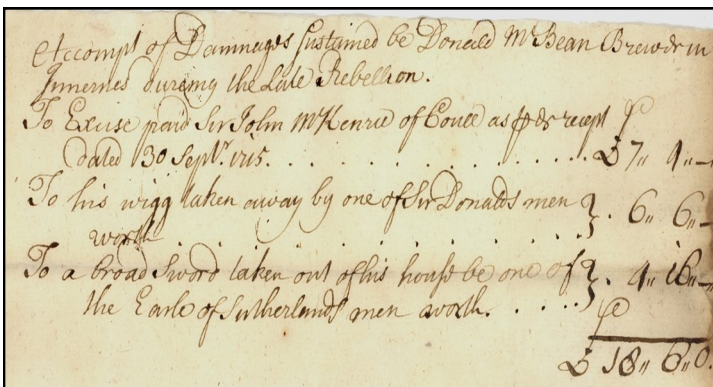 Accompt of Damnages Sustained be Donald McBean Brewer in
Innernes dureing the Late Rebellion.
To Excise paid Sir John McKenzie of Coull as per receipt
dated 30 Septr. 1715. . . . . . . . . . . . . £ 7,, 4,, —
To his wigg taken away by one of Sir Donalds men } . 6,, 6,, —
worth . . . . . . . . . . . .
To a broad Sword taken out of his house be one of } . 4,, 16,, —
the Earle of Sutherlands men worth. . . . .
£ 18,, 6,, 0.